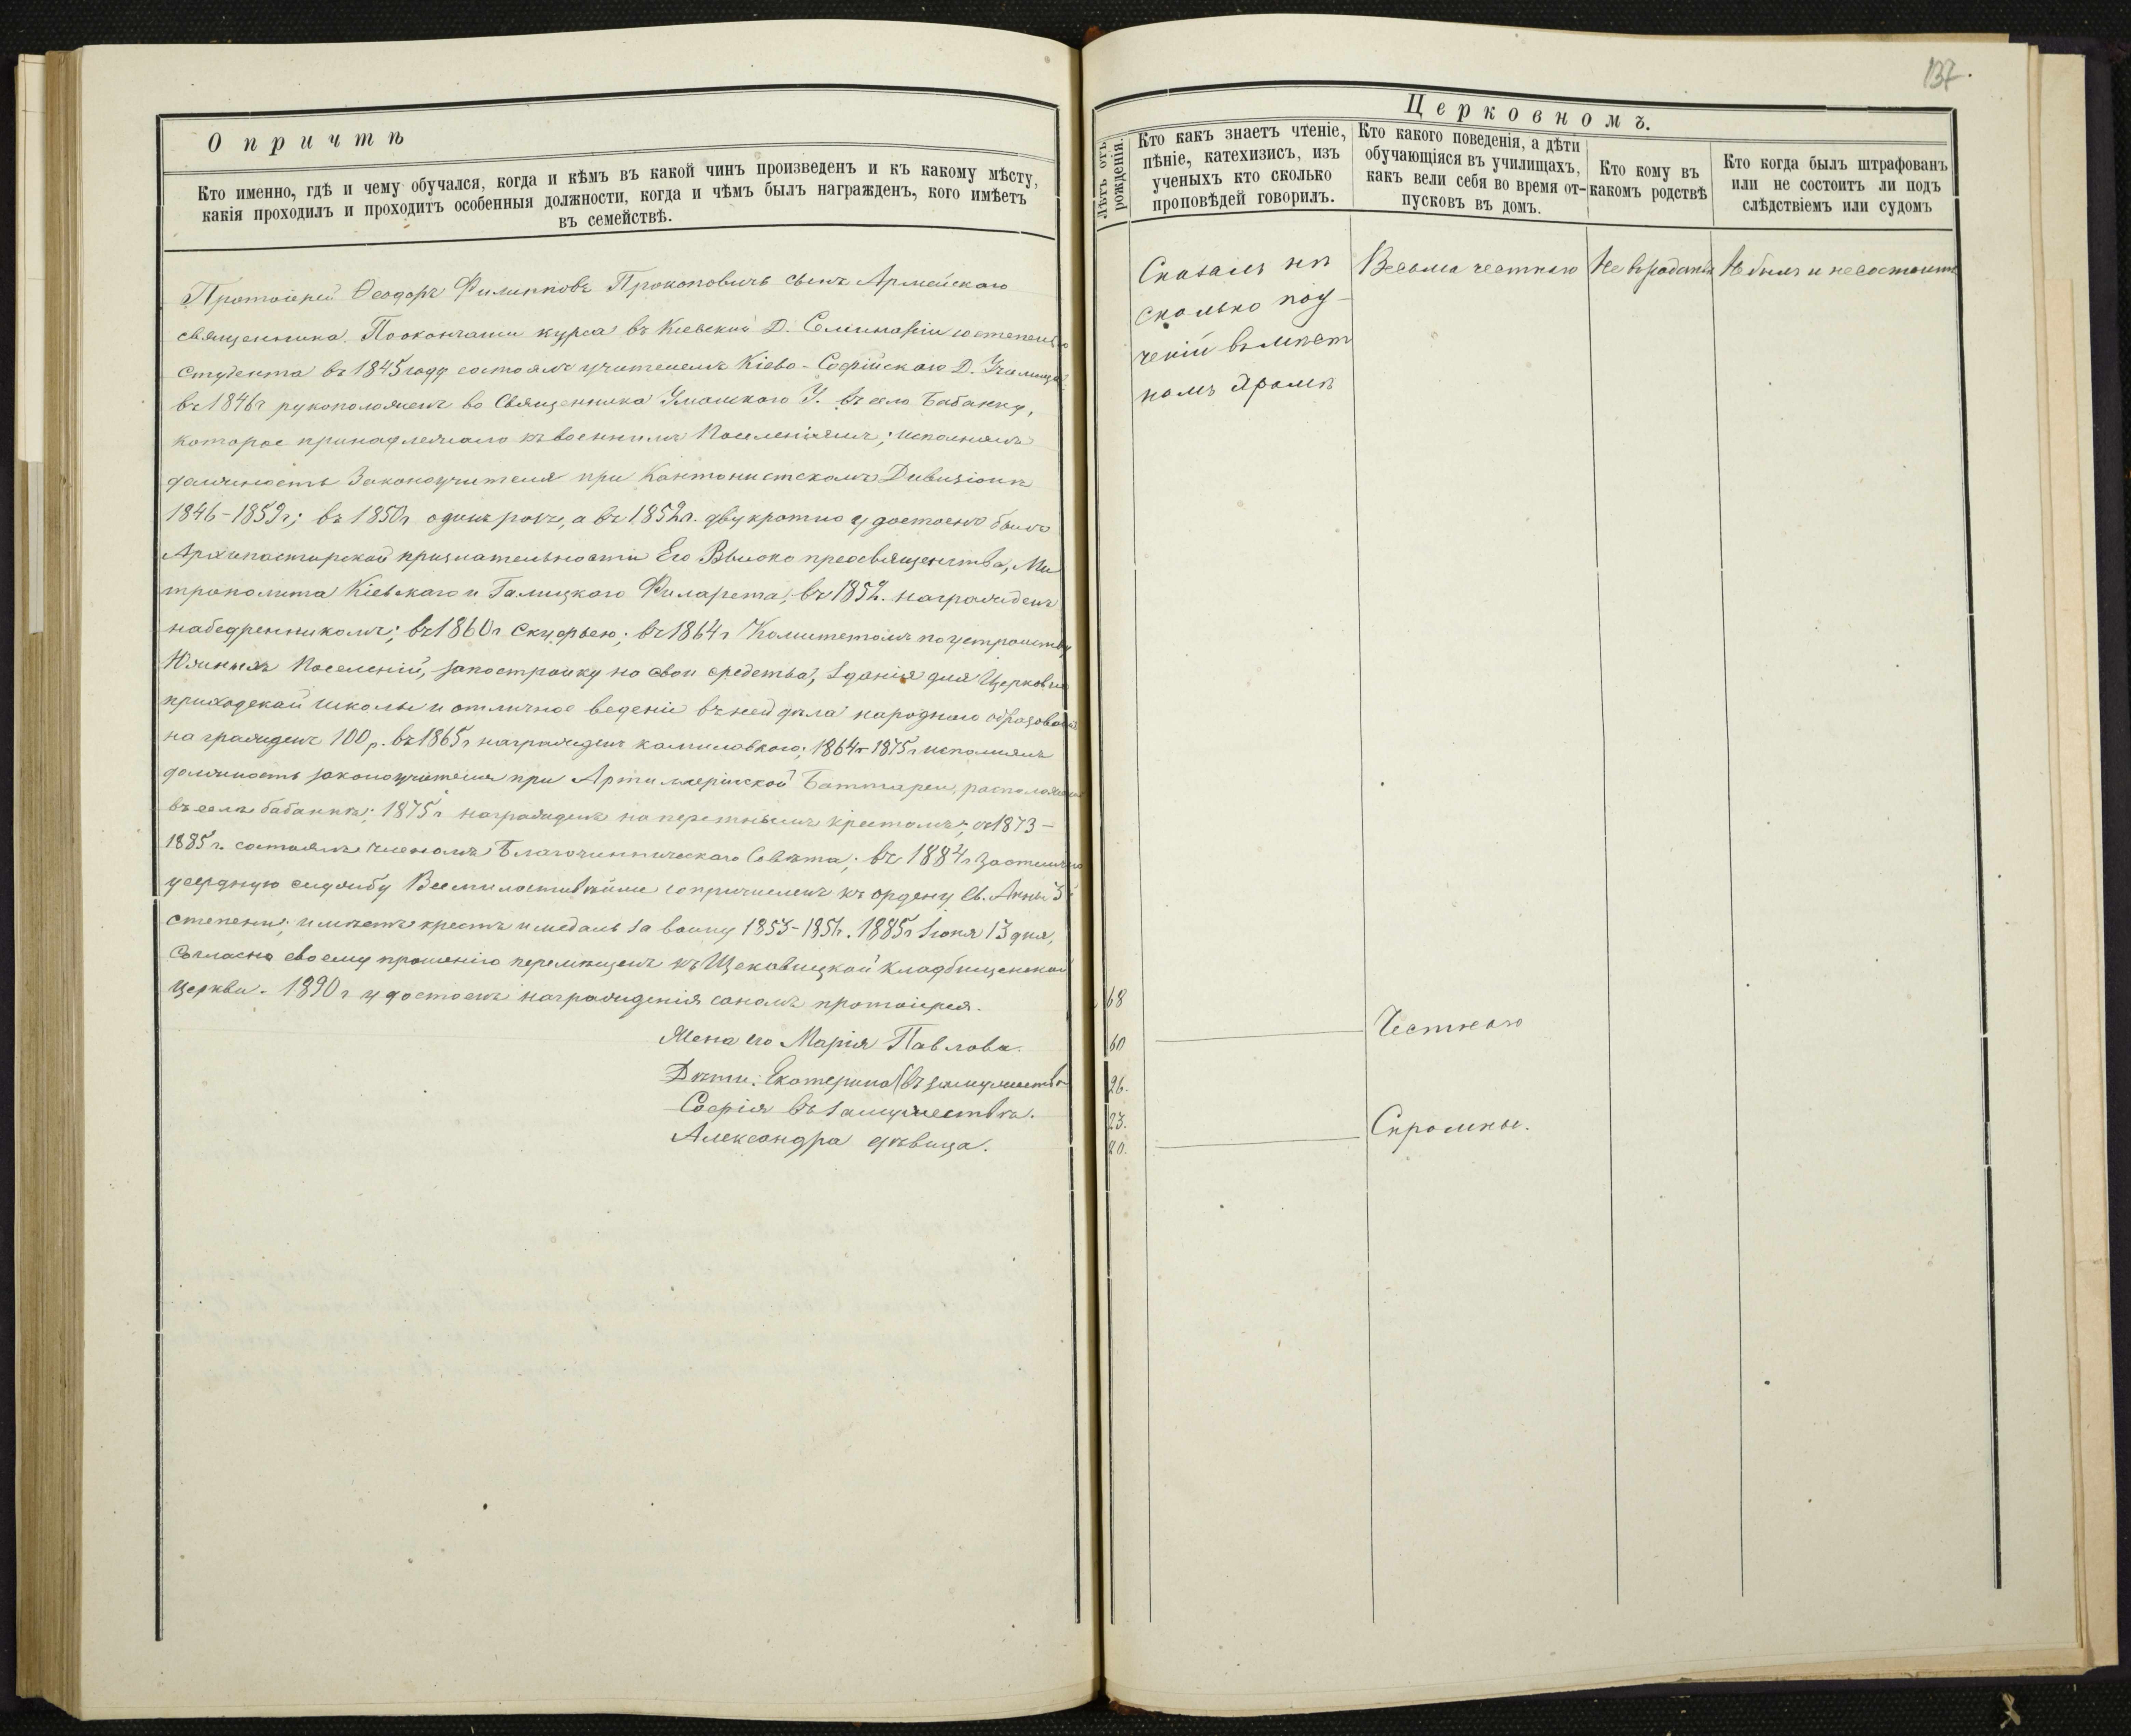 137.
О причтѣ
Церковномъ.
Кто именно, гдѣ и чему обучался, когда и кѣмъ въ какой чинъ произведенъ и къ какому мѣсту,
какія проходилъ и проходитъ особенныя должности, когда и чѣмъ былъ награжденъ, кого имѣетъ
въ семействѣ.
Лѣтъ отъ
рожденія.
Кто какъ знаетъ чтеніе,
пѣніе, катехизисъ, изъ
ученыхъ кто сколько
проповѣдей говорилъ.
Кто какого поведенія, а дѣти
обучающіяся въ училищахъ,
какъ вели себя во время от-
пусковъ въ домъ.
Кто кому въ
какомъ родствѣ
Кто когда былъ штрафованъ
или не состоитъ ли подъ
слѣдствіемъ или судомъ
Протоіерей Ѳеодоръ Филипповъ Прокоповичъ сынъ Армейскаго
священника. По окончаніи курса въ Кіевской Д. Семинаріи со степенью
студента въ 1845 году состоялъ учителемъ Кіево-Софійскаго Д. Училища
въ 1846 г рукоположенъ во Священника Уманскаго У. въ село Бабанку,
которое принадлежало къ военнымъ Поселеніямъ; исполнялъ
должность Законоучителя при Кантонистскомъ Дивизіонѣ
1846-1859 г; въ 1850 г одинъ разъ, а въ 1852 г. двукратно удостоенъ былъ
Архипастырской признательности Его Высокопреосвященства, Ми
трополита Кіевскаго и Галицкаго Филарета; въ 1852. награжденъ
набедренникомъ; въ 1860 г. Скуфьею; въ 1864 г Комитетомъ по устройству
Южныхъ Поселеній, за постройку на свои средства, зданія для Церковно
приходской школы и отличное веденіе въ ней дѣла народнаго образованія
награжденъ 100 р. въ 1865 г награжденъ камилавкою; 1864 г-1875 г исполнялъ
должность законоучителя при Артиллерійской Баттареи, расположенной
въ селѣ бабанкѣ; 1875 г награжденъ наперстнымъ крестомъ; съ 1873-
1885 г. состоялъ членомъ Благочинническаго Совѣта; въ 1884 г за отлично
усердную службу Всемилостивѣйше сопричисленъ къ ордену Св. Анны 3й
степени; имѣетъ крестъ и медаль за войну 1853-1856. 1885 г Іюня 13 дня,
Согласно своему прошенію перемѣщенъ къ Щекавицкой кладбищенской
Церкви. 1890 г удостоенъ награжденія саномъ протоіерея.
68
Сказалъ нѣ
сколько поу-
ченій въ мѣст
номъ храмѣ
Весьма честнаго
Не въ родствѣ
Не былъ и не состоитъ
Жена его Марія Павлова.
60
Честнаго
Дѣти: Екатерина въ замужествѣ
26.
Софія въ замужествѣ.
23.
Александра дѣвица.
20.
Скромны.